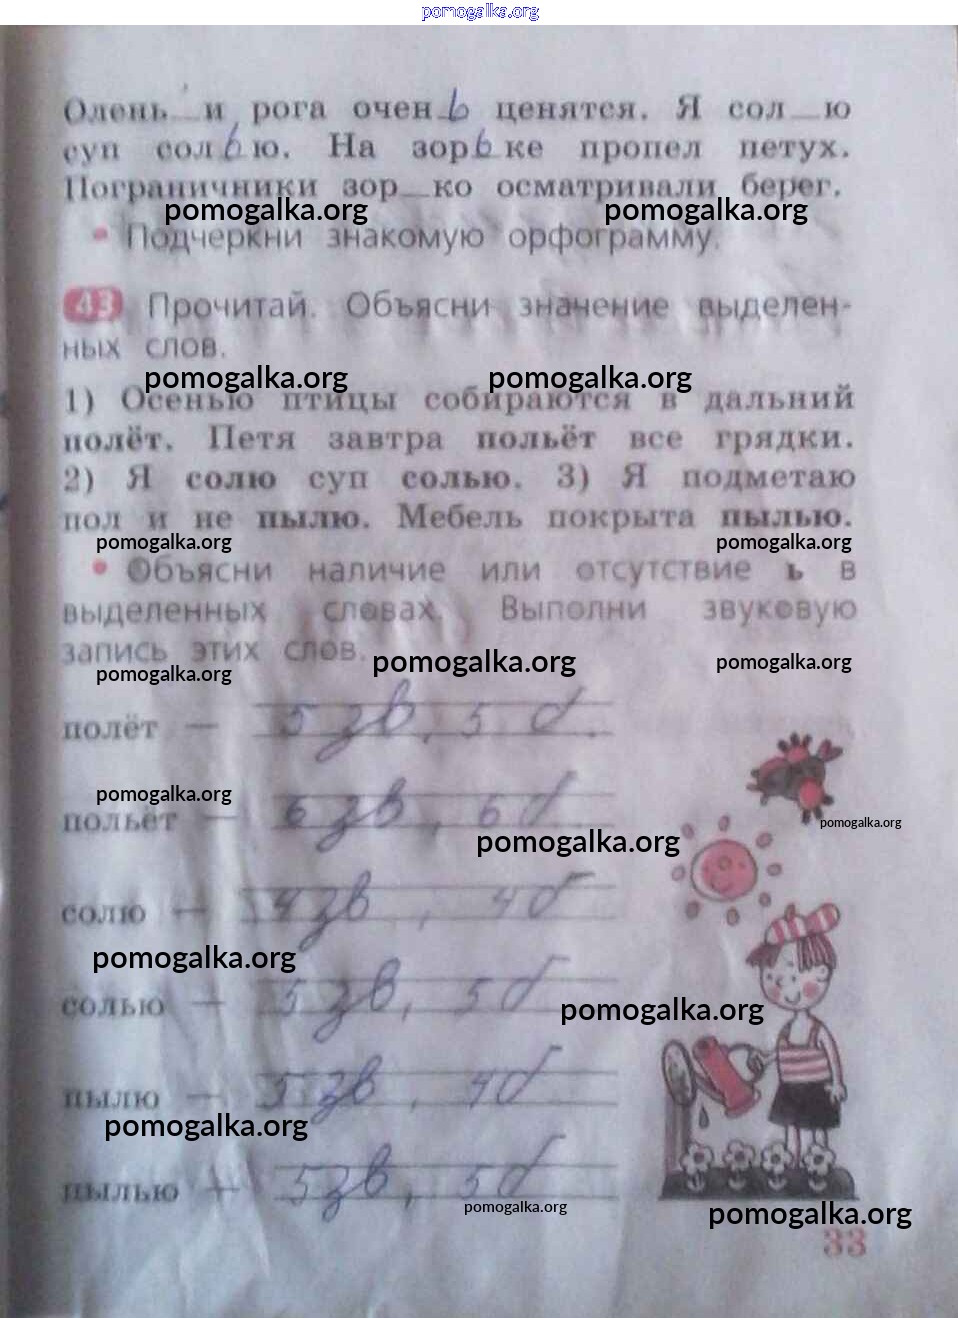 pomogalka.org
Олень__и рога очен ь ценятся. Я сол__ю
суп сол ь ю. На зор ь ке пропел петух.
Пограничники зор__ко осматривали берег.
pomogalka.org pomogalka.org
• Подчеркни знакомую орфограмму.
43 Прочитай. Объясни значение выделен-
ных слов.
pomogalka.org pomogalka.org
1) Осенью птицы собираются в дальний
полёт. Петя завтра польёт все грядки.
2) Я солю суп солью. 3) Я подметаю
пол и не пылю. Мебель покрыта пылью.
pomogalka.org pomogalka.org
• Объясни наличие или отсутствие ь в
выделенных словах. Выполни звуковую
запись этих слов.
pomogalka.org pomogalka.org pomogalka.org
полёт — 5 зв, 5 б.
pomogalka.org
польёт — 6 зв, 6 б
pomogalka.org pomogalka.org
солю — 4 зв, 4 б
pomogalka.org
солью — 5 зв, 5 б
pomogalka.org
пылю — 5 зв, 4 б
pomogalka.org
пылью — 5 зв, 5 б
pomogalka.org pomogalka.org
33